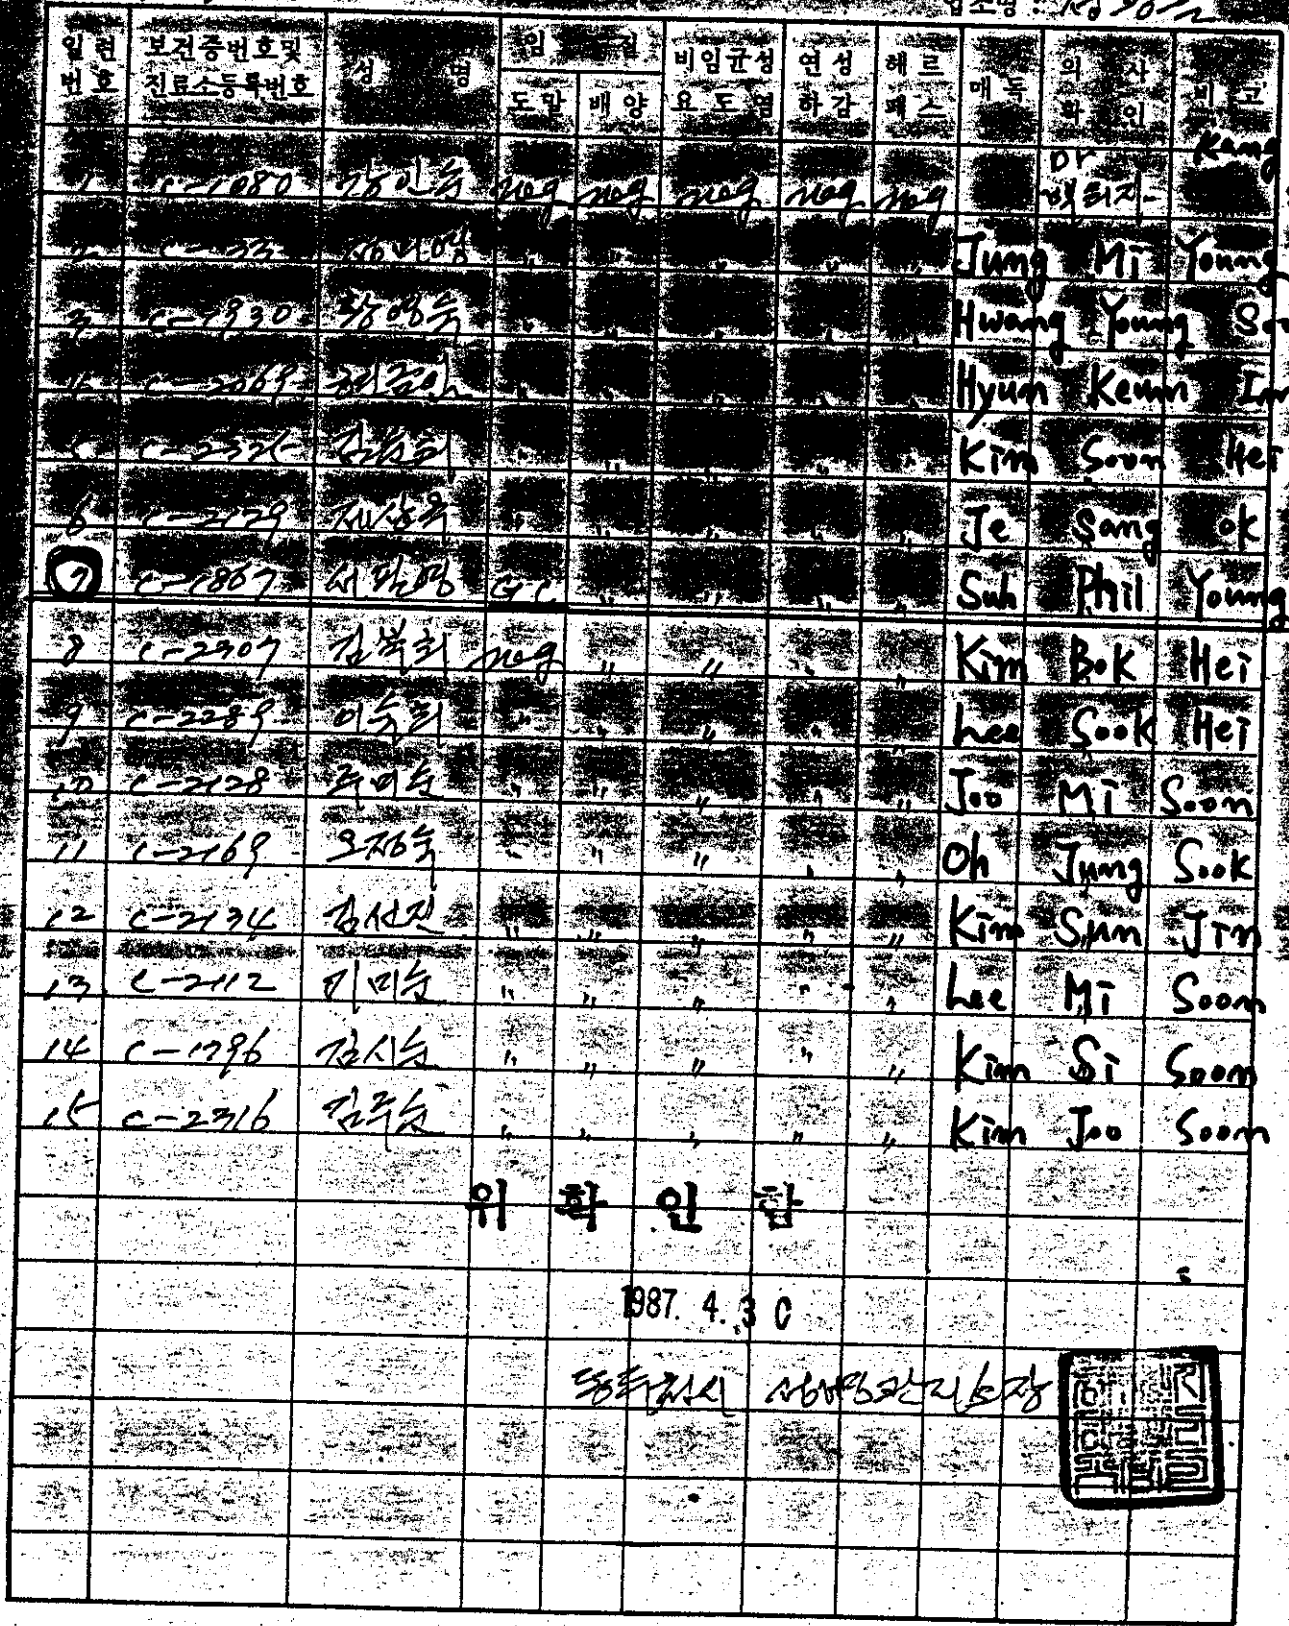 업소명 :
일련번호 보건증번호및진료소등록번호 성 명 임 질 도말 배양 비임균성요도염 연성하감 헤르페스 매독 의사확인 비고
1 C-1080 강인숙 neg neg neg neg neg Dr Kang
2 Jung Mi Young
3 C-1930 황영숙 " " " " " Hwang Young
4 C-2069 현금인 " " " " " Hyun Keum Im
5 C-2325 김순희 " " " " " Kim Soon Hei
6 C-2129 제상옥 " " " " " Je Sang ok
7 C-1867 서필영 G.C " " " " Suh Phil Young
8 C-2907 김복희 neg " " " " Kim Bok Hei
9 C-2289 이숙희 " " " " " Lee Sook Hei
10 C-2128 주미순 " " " " " Joo Mi Soon
11 C-2169 오정숙 " " " " " Oh Jung Sook
12 C-2134 김선진 " " " " " Kim Sun Jin
13 C-2112 이미순 " " " " " Lee Mi Soon
14 C-1796 김시순 " " " " " Kim Si Soon
15 C-2316 김주순 " " " " " Kim Joo Soon
위 확 인 함
1987. 4. 3 0
동두천시